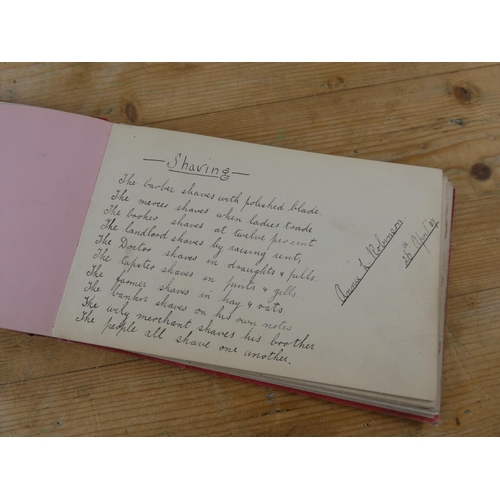 — Shaving —
The barber shaves with polished blade
The mercer shaves when ladies trade
The broker shaves at twelve per cent
The landlord shaves by raising rent,
The Doctor shaves in draughts & pills.
The tapster shaves in pints & gills.
The farmer shaves in hay & oats
The banker shaves on his own notes
The wily merchant shaves his brother
The people all shave one another.
Annie L Robinson